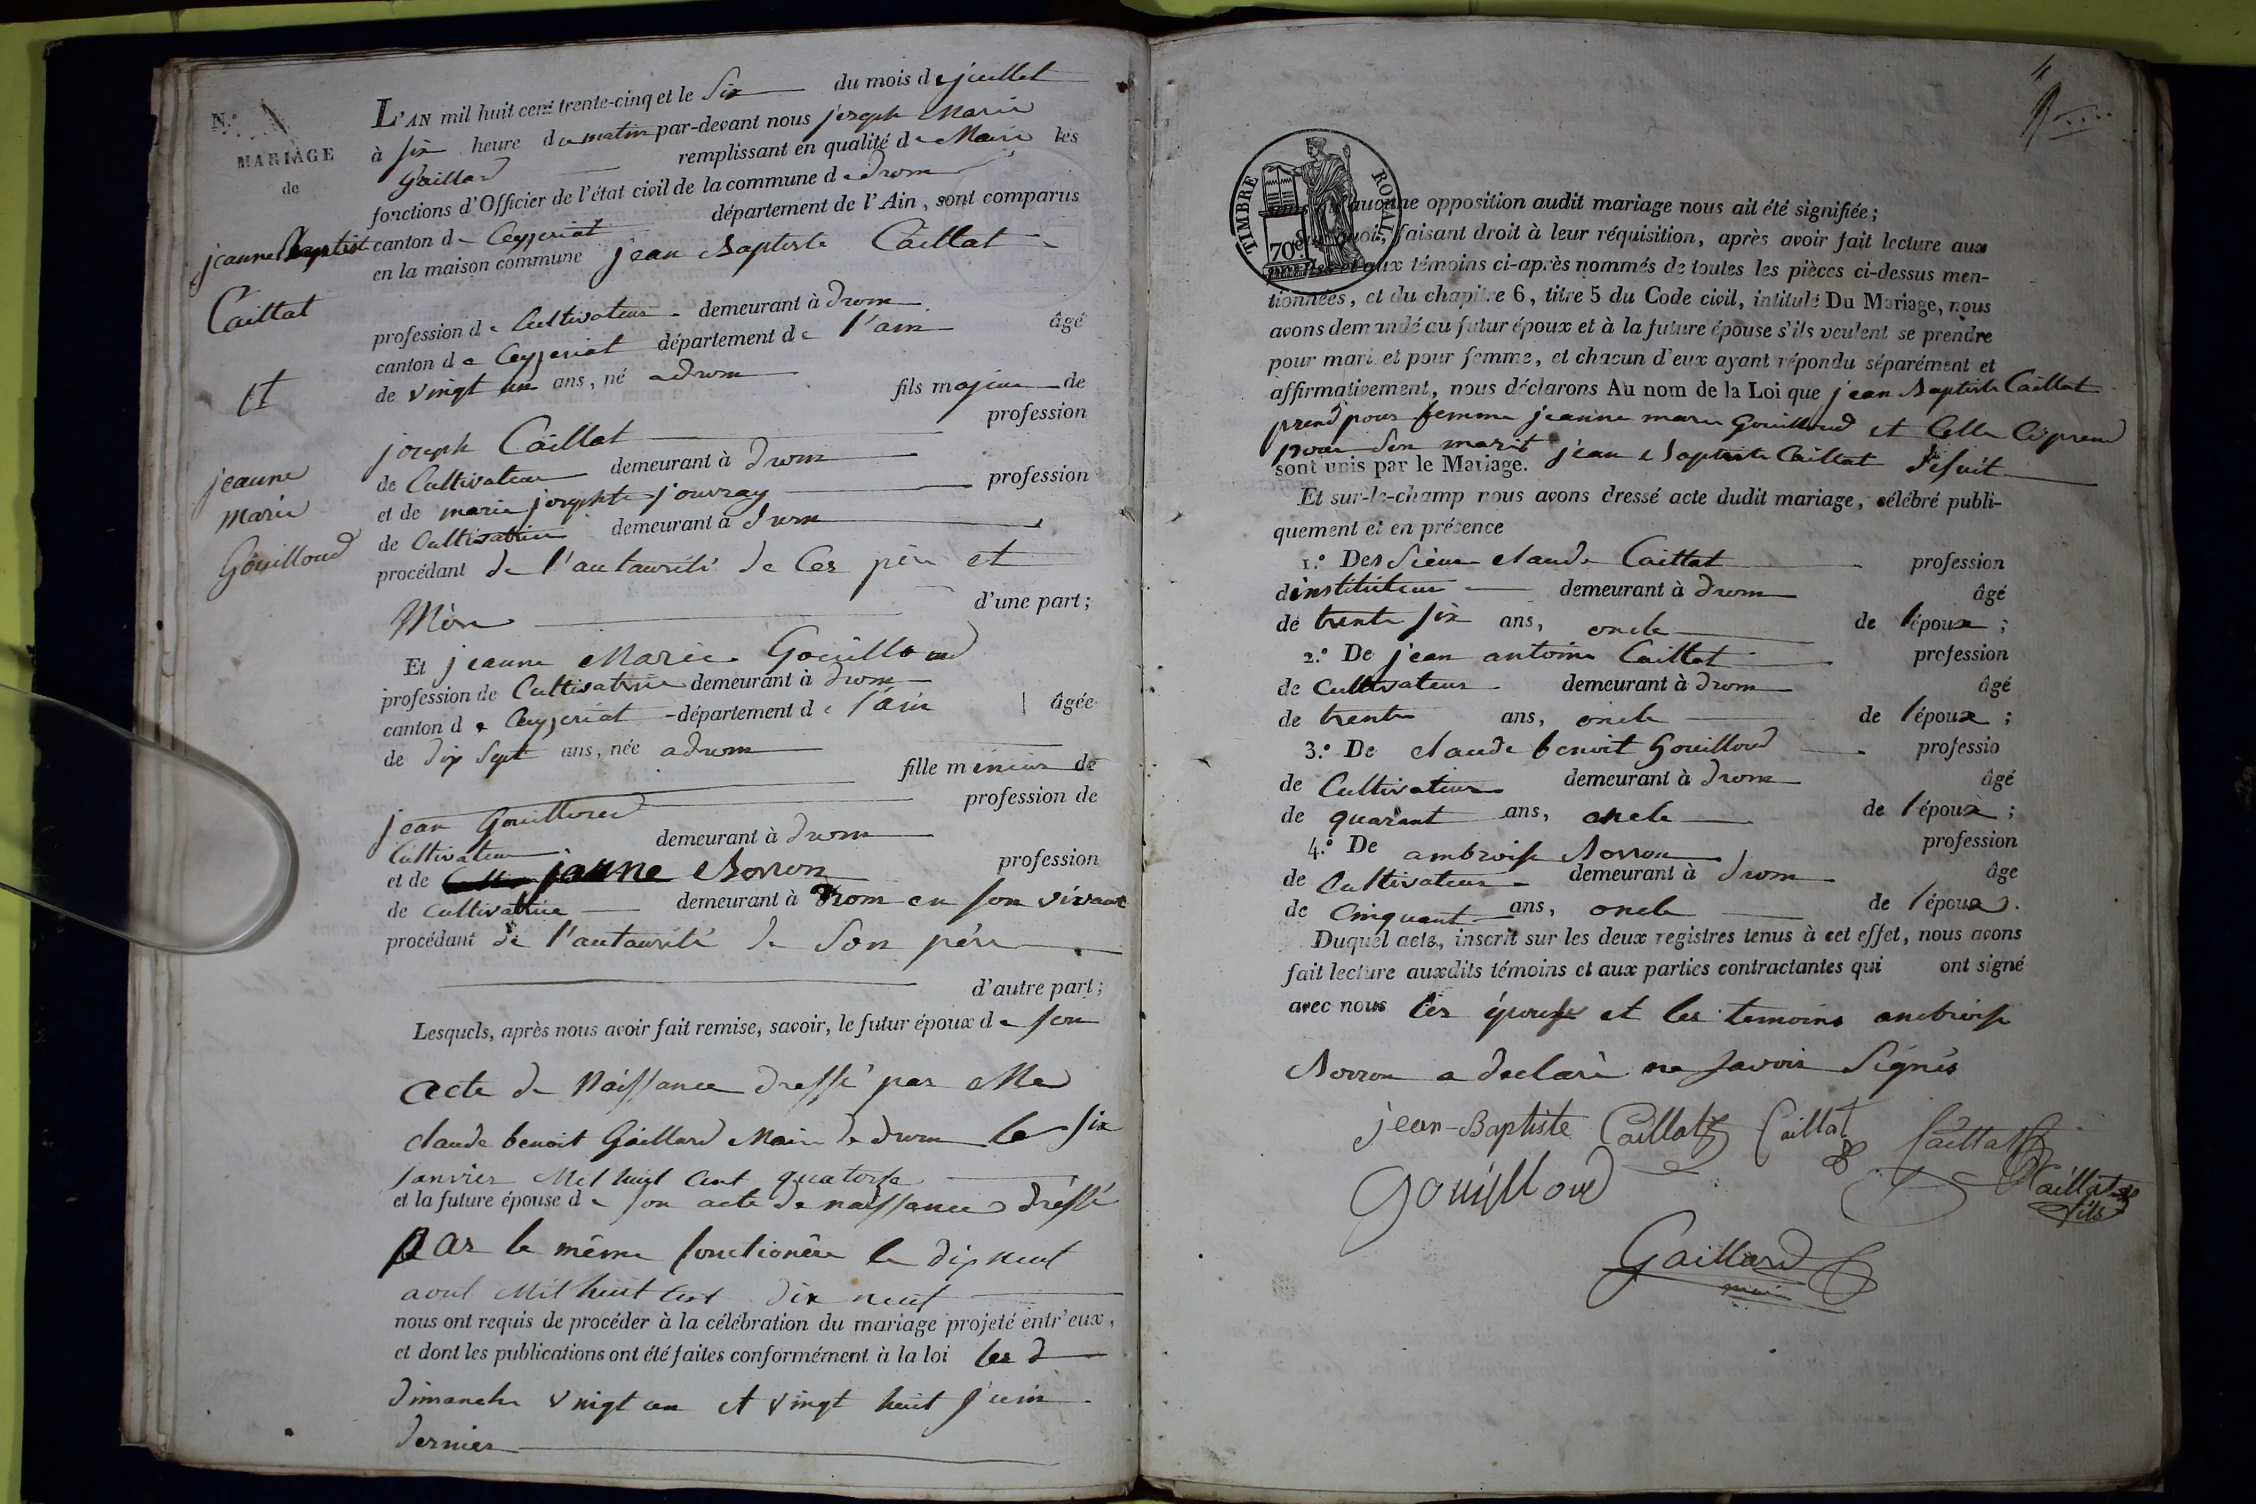 N.º
MARIAGE
de
jeanne Baptist
Caillat
et
jeanne
marie
Gouilloud
L'AN mil huit cent trente-cinq et le Six du mois de juillet
à six heure du matin par-devant nous joseph Marie
Gaillard remplissant en qualité de Maire les
fonctions d'Officier de l'état civil de la commune de drom
canton de Ceyzeriat département de l'Ain, sont comparus
en la maison commune jean Baptiste Caillat
profession de Cultivateur demeurant à drom
canton de Ceyzeriat département de l'ain âgé
de vingt un ans, né a drom fils majeur de
joseph Caillat profession
de Cultivateur demeurant à drom
et de marie josephte jouvray profession
de Cultivatrice demeurant à drom
procédant de l'autaurité de Ces père et
Mère d'une part;
Et jeanne Marie Gouilloud
profession de Cultivatrice demeurant à drom
canton de Ceyzeriat département de l'ain âgée
de dix sept ans, née a drom
fille mineur de
jean Gouilloud profession de
Cultivateur demeurant à drom
et de jeanne Borron profession
de cultivatrice demeurant à Drom en son vivant
procédant de l'autaurité de Son père
d'autre part;
Lesquels, après nous avoir fait remise, savoir, le futur époux de son
acte de Naissance dressé par Me
claude benoit Gaillard Maire de drom le six
janvier Mil huit Cent quatorse
et la future épouse de son acte de naissance dréssé
par le même fonctionère le dix neuf
aout Mil huit Cent dix neuf
nous ont requis de procéder à la célébration du mariage projeté entr'eux,
et dont les publications ont été faites conformément à la loi les d
dimanche vingt un et vingt huit juin
dernier
TIMBRE ROYAL
70
aucune opposition audit mariage nous ait été signifiée;
quoi, faisant droit à leur réquisition, après avoir fait lecture aux
parties et aux témoins ci-après nommés de toutes les pièces ci-dessus men-
tionnées, et du chapitre 6, titre 5 du Code civil, intitulé Du Mariage, nous
avons demandé au futur époux et à la future épouse s'ils veulent se prendre
pour mari et pour femme, et chacun d'eux ayant répondu séparément et
affirmativement, nous déclarons Au nom de la Loi que jean Baptiste Caillat
prend pour femme jeanne marie Gouilloud et Celle Ci prend
pour Son marit jean Baptiste Caillat
sont unis par le Mariage.
Et sur-le-champ nous avons dressé acte dudit mariage, célébré publi-
quement et en présence
1.º Des Sieur claude Caillat profession
d'instituteur demeurant à drom âgé
de trente six ans, oncle de l'époux;
2.º De jean antoine Caillat profession
de Cultivateur demeurant à drom âgé
de trente ans, oncle de l'époux;
3.º De claude benoit Gouilloud professio
de Cultivateur demeurant à drom âgé
de quarant ans, oncle de l'époux;
4.º De ambroise Borron profession
de Cultivateur demeurant à drom âge
de Cinquant ans, oncle de l'époux.
Duquel acte, inscrit sur les deux registres tenus à cet effet, nous avons
fait lecture auxdits témoins et aux parties contractantes qui ont signé
avec nous les épouse et les temoins ambroise
Borron a declaré ne savoir Signés
jean-Baptiste Caillat Caillat Caillat
Gouilloud Caillat
fils
Gaillard
maire